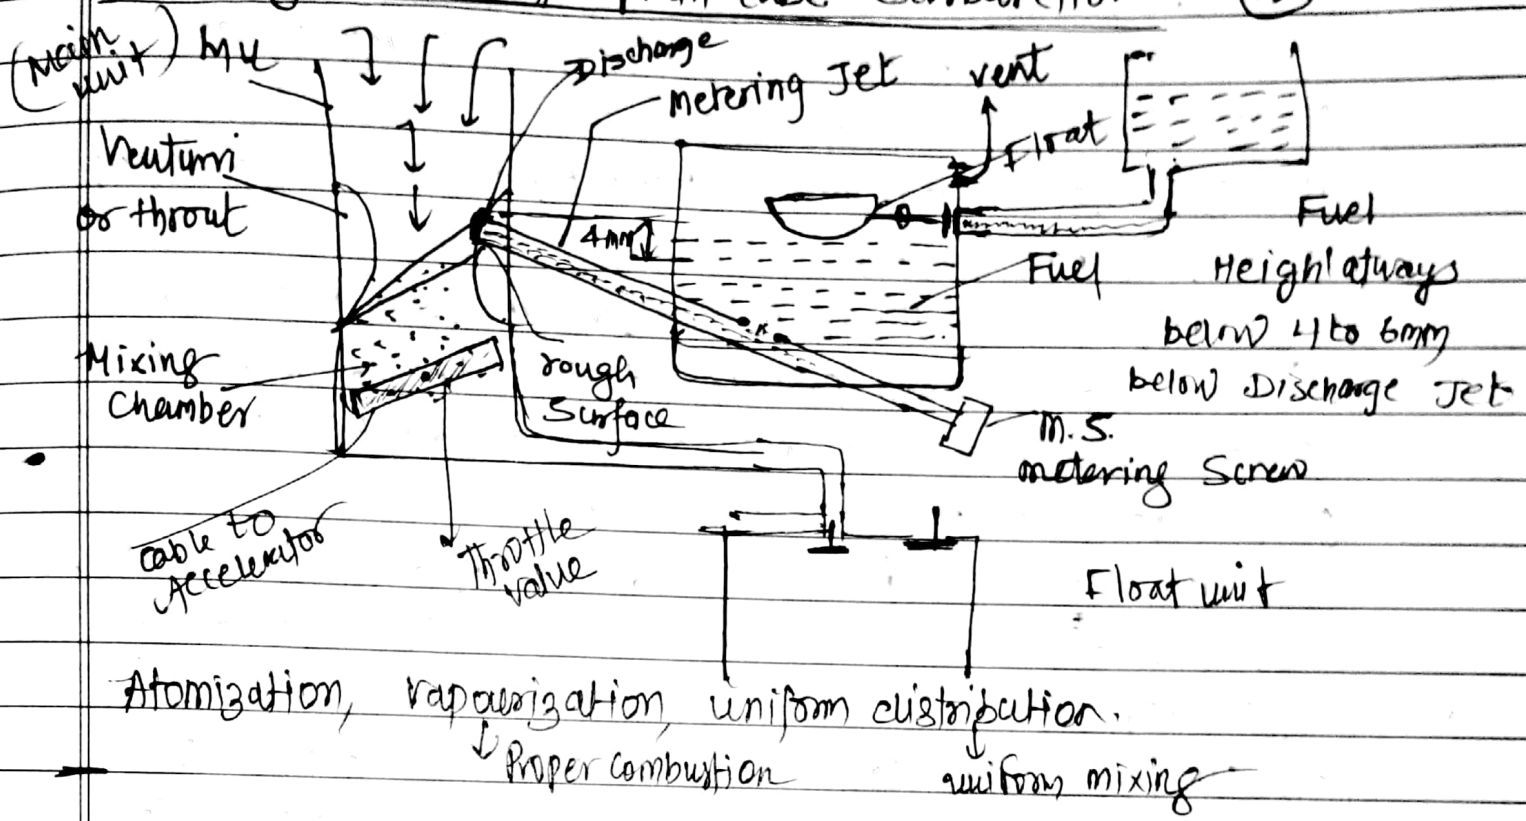 (Main unit) MU
Discharge
Metering Jet
vent
Float
Venturi
or throat
4mm
Fuel
Fuel
Height always
below 4 to 6mm
below Discharge Jet
Mixing
Chamber
rough
Surface
M.S.
metering Screw
cable to
Accelerator
Throttle
value
Float unit
Atomization, vapourization, uniform distribution.
Proper combustion
uniform mixing